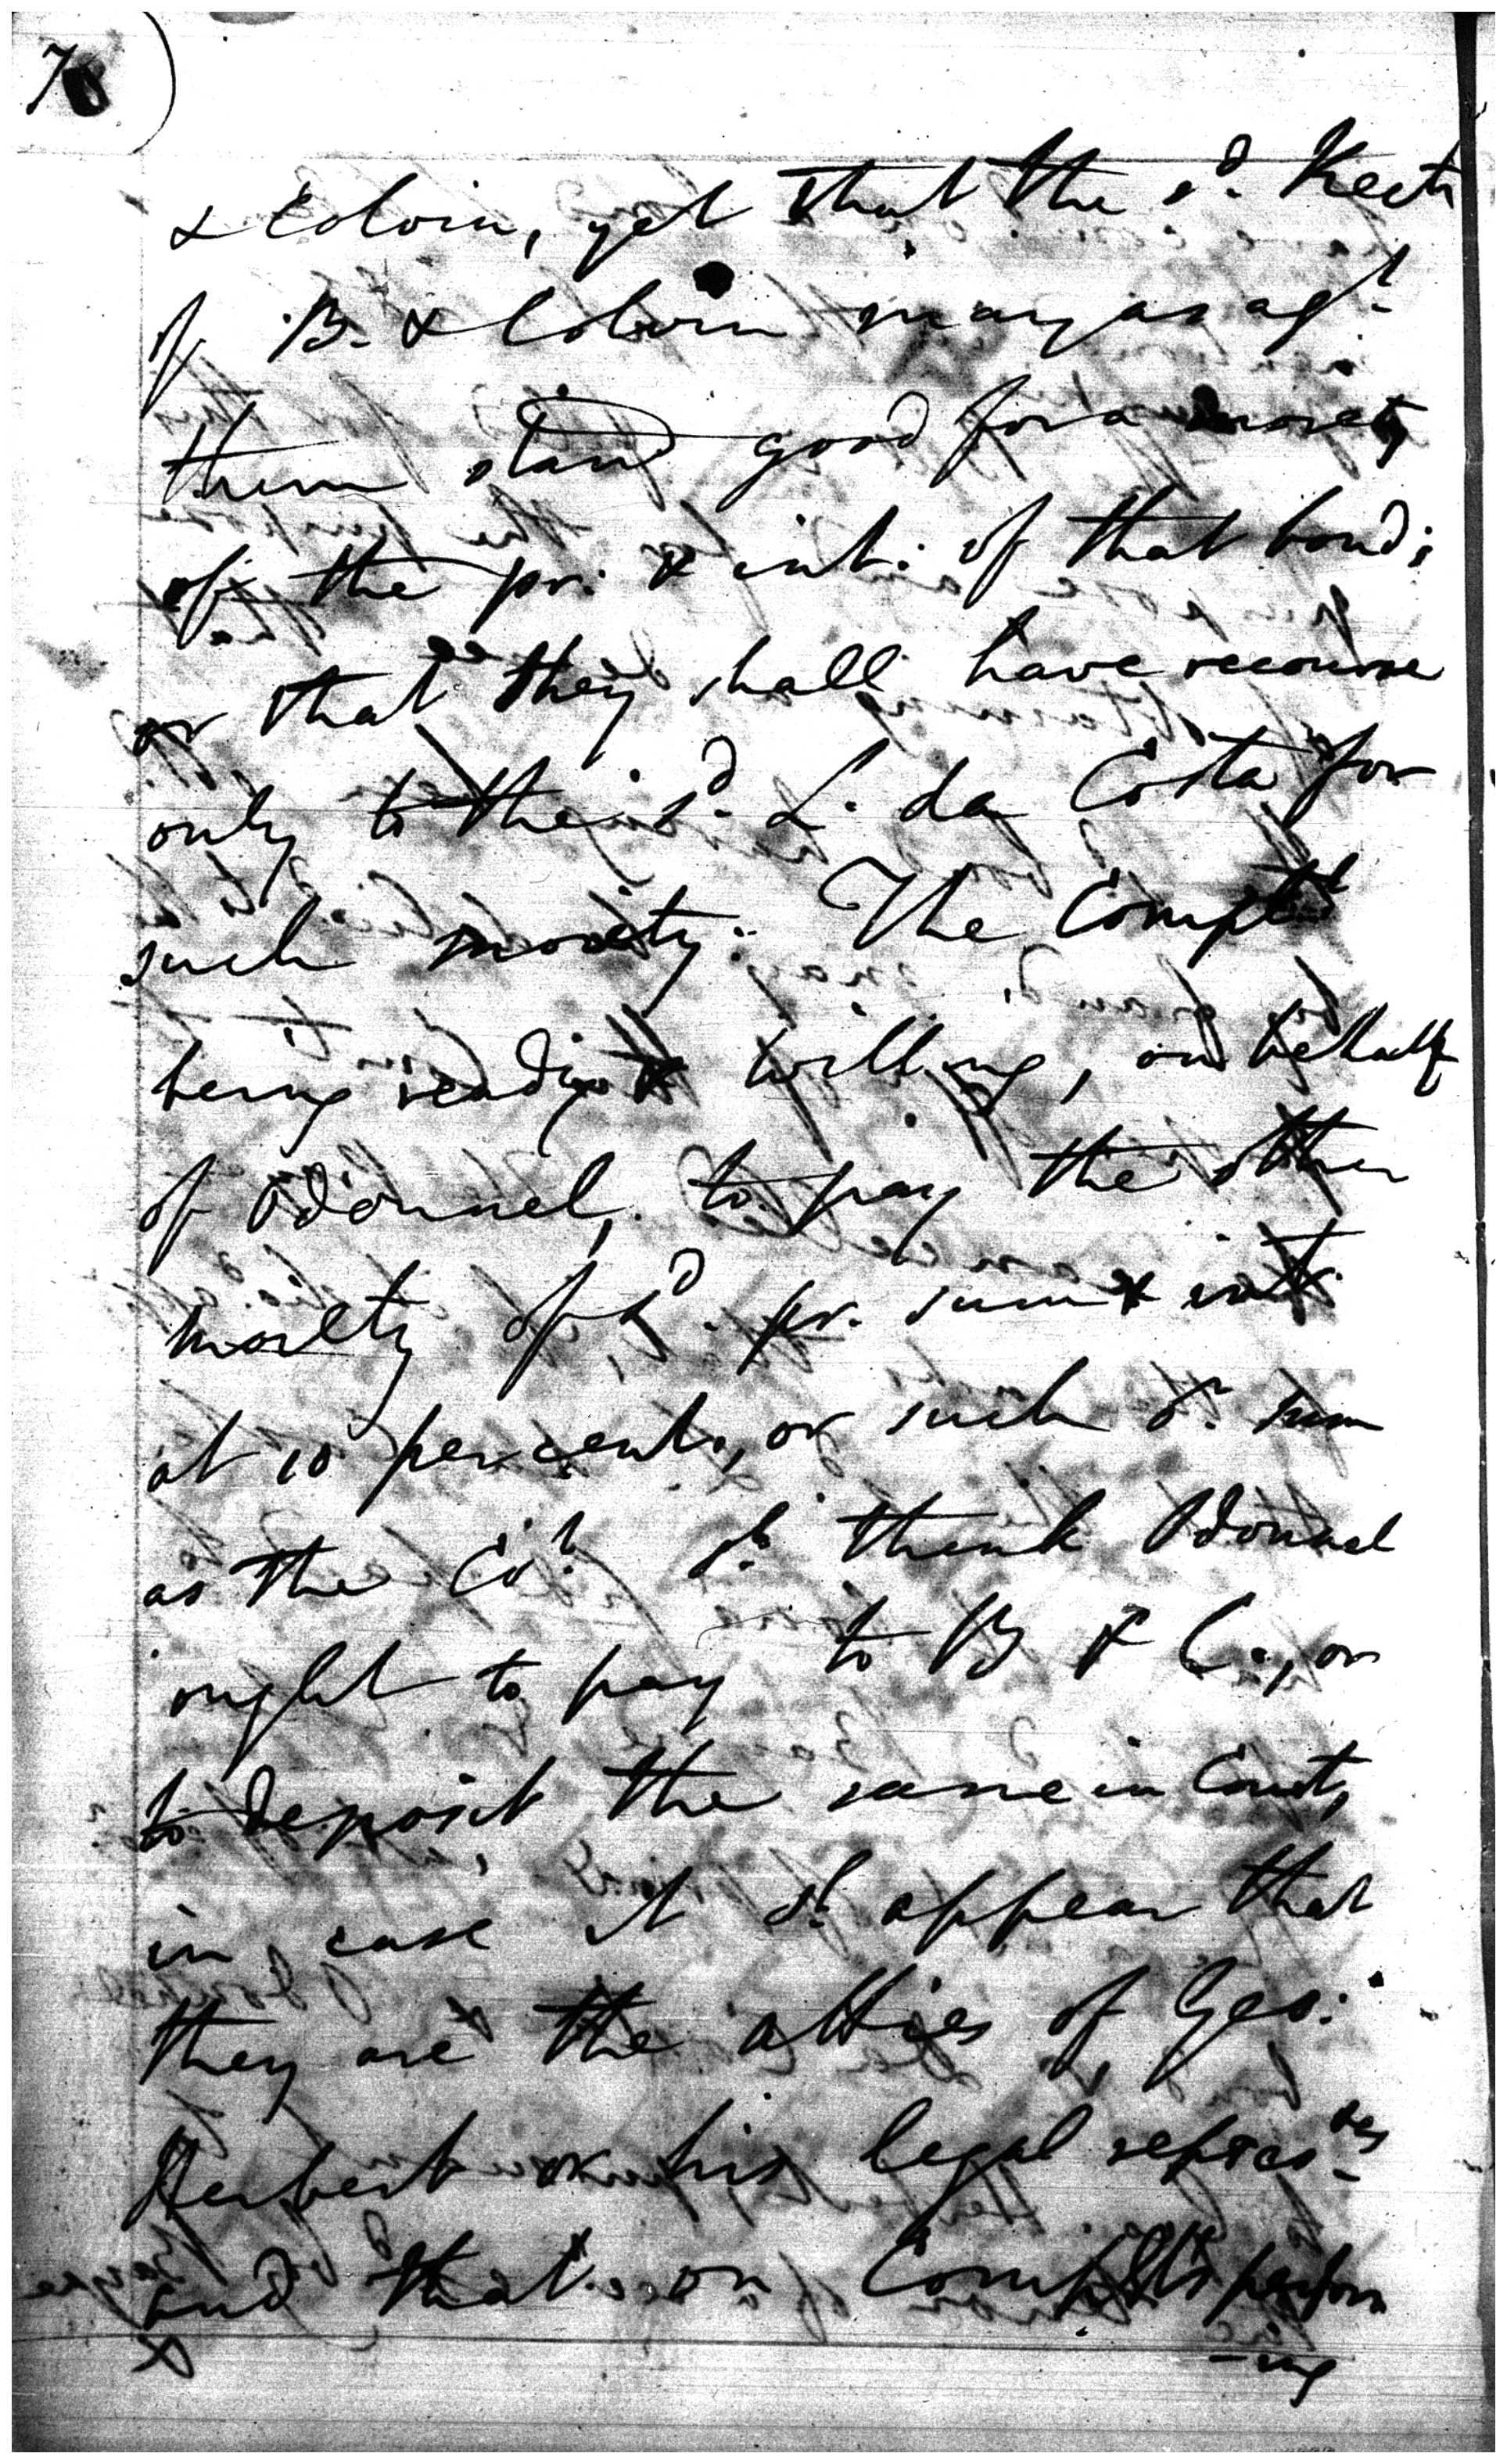 78
& Colvin, yet that the sd. Keeti
of B. & Colvin may as agt.
them stand good for a moiety
of the pr. & int. of that bond;
or that they shall have recourse
only to the sd. L. da Costa for
such moiety. The Complt
being ready & willing, on behalf
of Odonnel, to pay the other
moiety of sd. pr. sum & int.
at 10 per cent, or such sum
as the Cot. sh. think Odonnel
ought to pay to B & C., or
to deposit the same in Court,
in case it sh. appear that
they are the atties of Geo.
Herbert or his legal repres.tes
and that on Complts perform
-ing
&